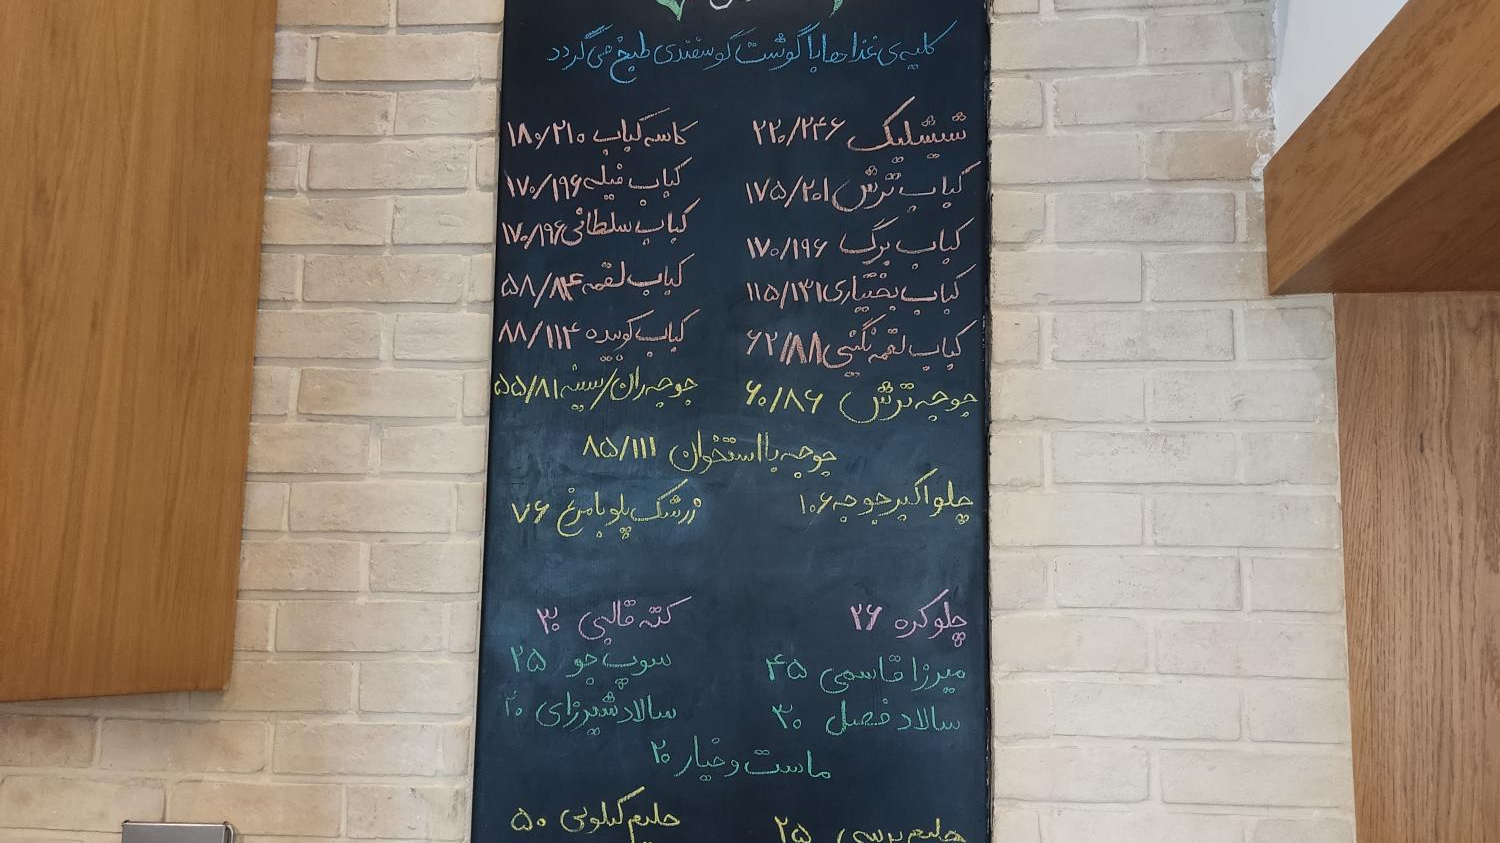 کلیه‌ی غذاها با گوشت گوسفندی طبخ می گردد
شیشلیک ۲۲۰/۲۴۶
کاسه کباب ۱۸۰/۲۱۰
کباب ترش ۱۷۵/۲۰۱
کباب فیله ۱۷۰/۱۹۶
کباب برگ ۱۷۰/۱۹۶
کباب سلطانی ۱۷۰/۱۹۶
کباب بختیاری ۱۱۵/۱۳۱
کباب لقمه ۵۸/۸۴
کباب لقمه نگینی ۶۲/۸۸
کباب کوبیده ۸۸/۱۱۴
جوجه ترش ۶۰/۸۶
جوجه ران/سینه ۵۵/۸۱
جوجه با استخوان ۸۵/۱۱۱
چلو اکبر جوجه ۱۰۶
زرشک پلو با مرغ ۷۶
چلو کره ۲۶
کته قالبی ۳۰
میرزا قاسمی ۴۵
سوپ جو ۲۵
سالاد فصل ۳۰
سالاد شیرازی ۲۰
ماست و خیار ۲۰
حلیم پرسی ۲۵
حلیم کیلویی ۵۰